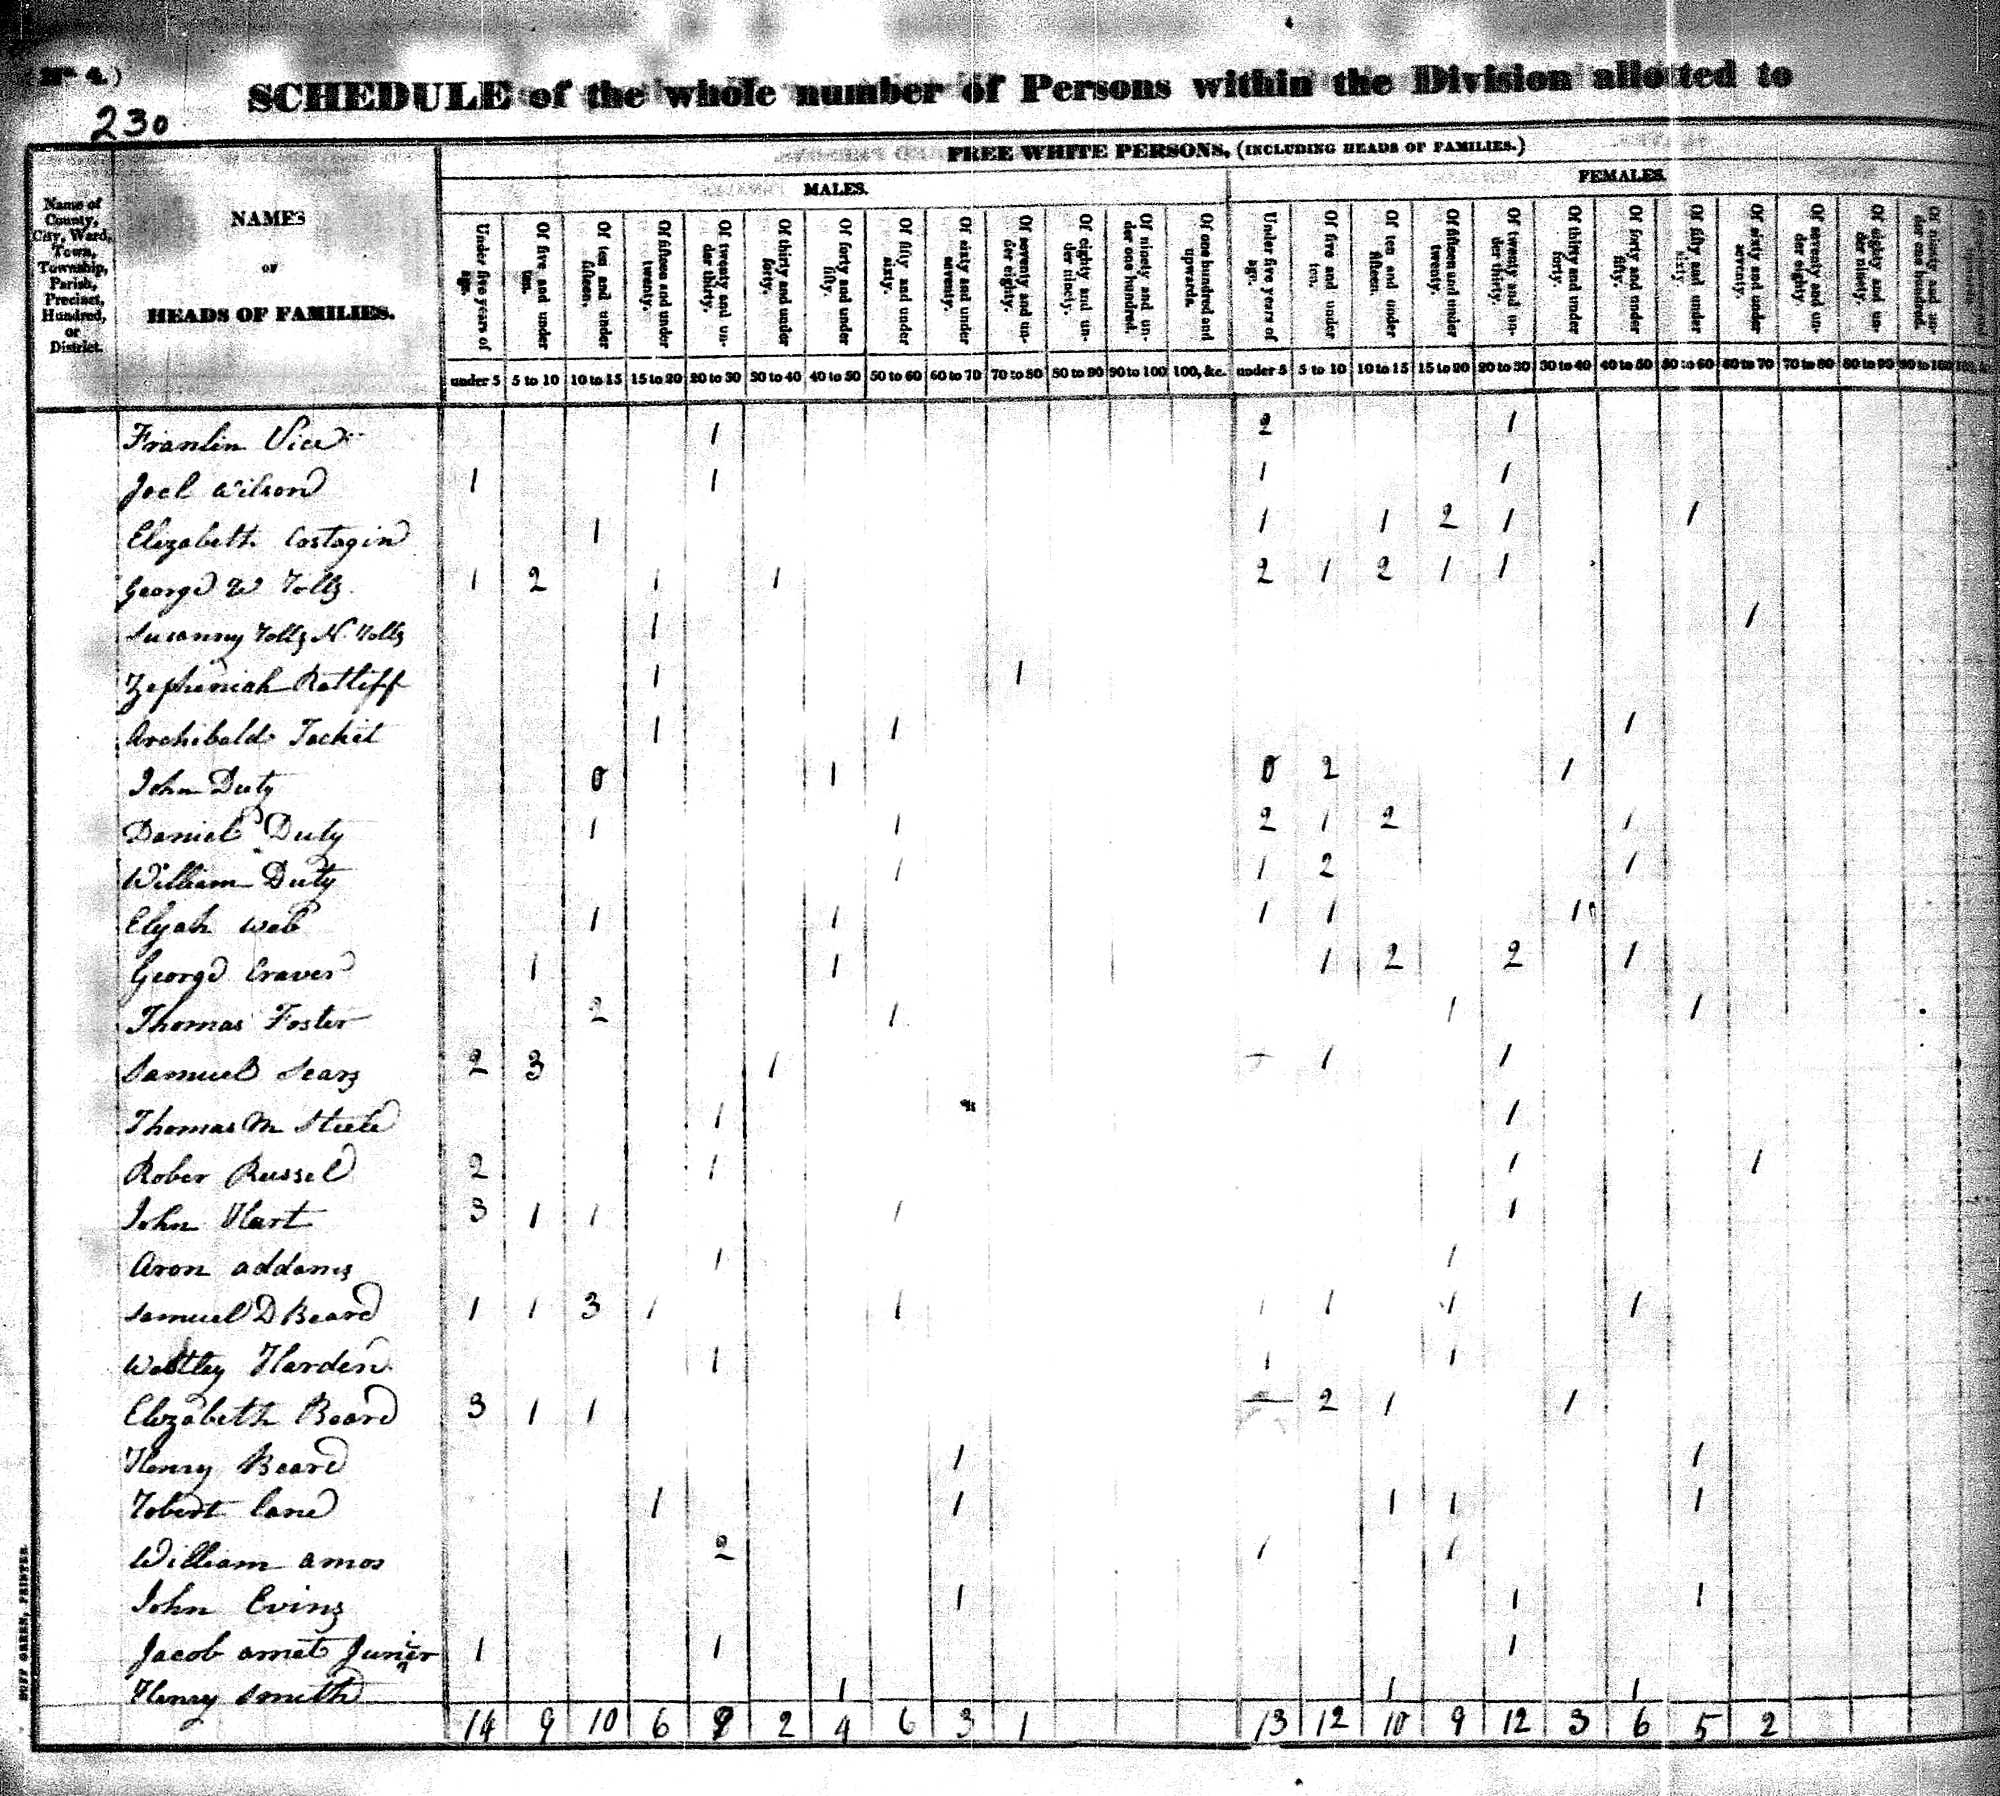 No 4.)
230
SCHEDULE of the whole number of Persons within the Division allotted to
FREE WHITE PERSONS, (INCLUDING HEADS OF FAMILIES.)
MALES. FEMALES.
Name of County, City, Ward, Town, Township, Parish, Precinct, Hundred, or District.
NAMES
OF
HEADS OF FAMILIES.
Under five years of age. Of five and under ten. Of ten and under fifteen. Of fifteen and under twenty. Of twenty and under thirty. Of thirty and under forty. Of forty and under fifty. Of fifty and under sixty. Of sixty and under seventy. Of seventy and under eighty. Of eighty and under ninety. Of ninety and under one hundred. Of one hundred and upwards. Under five years of age. Of five and under ten. Of ten and under fifteen. Of fifteen and under twenty. Of twenty and under thirty. Of thirty and under forty. Of forty and under fifty. Of fifty and under sixty. Of sixty and under seventy. Of seventy and under eighty. Of eighty and under ninety. Of ninety and under one hundred.
under 5 5 to 10 10 to 15 15 to 20 20 to 30 30 to 40 40 to 50 50 to 60 60 to 70 70 to 80 80 to 90 90 to 100 100, &c. under 5 5 to 10 10 to 15 15 to 20 20 to 30 30 to 40 40 to 50 50 to 60 60 to 70 70 to 80 80 to 90 90 to 100
Franlin Vice 1 2 1
Joel Wilson 1 1 1 1
Elizabeth Costagin 1 1 1 2 1 1
George W Tolls 1 2 1 1 2 1 2 1 1
Susanny Tolls N. Tolls 1 1
Zepheniah Ratliff 1 1
Archibald Tackit 1 1 1
John Duty 0 1 0 2 1
Daniel Duty 1 1 2 1 2 1
William Duty 1 1 2 1
Elijah Web 1 1 1 1 1
George Craver 1 1 1 2 2 1
Thomas Foster 2 1 1 1
Samuel Sears 2 3 1 1 1
Thomas M Steele 1 1
Rober Russel 2 1 1 1
John Hart 3 1 1 1 1
Aron addams 1 1
Samuel D Beard 1 1 3 1 1 1 1 1 1
Westley Harden 1 1 1
Elizabeth Beard 3 1 1 2 1 1
Henry Beard 1 1
Robert Lane 1 1 1 1 1
William amos 2 1 1
John Evins 1 1 1
Jacob amet Junior 1 1 1
Henry Smith 1 1 1
14 9 10 6 9 2 4 6 3 1 13 12 10 9 12 3 6 5 2
DUFF GREEN, PRINTER